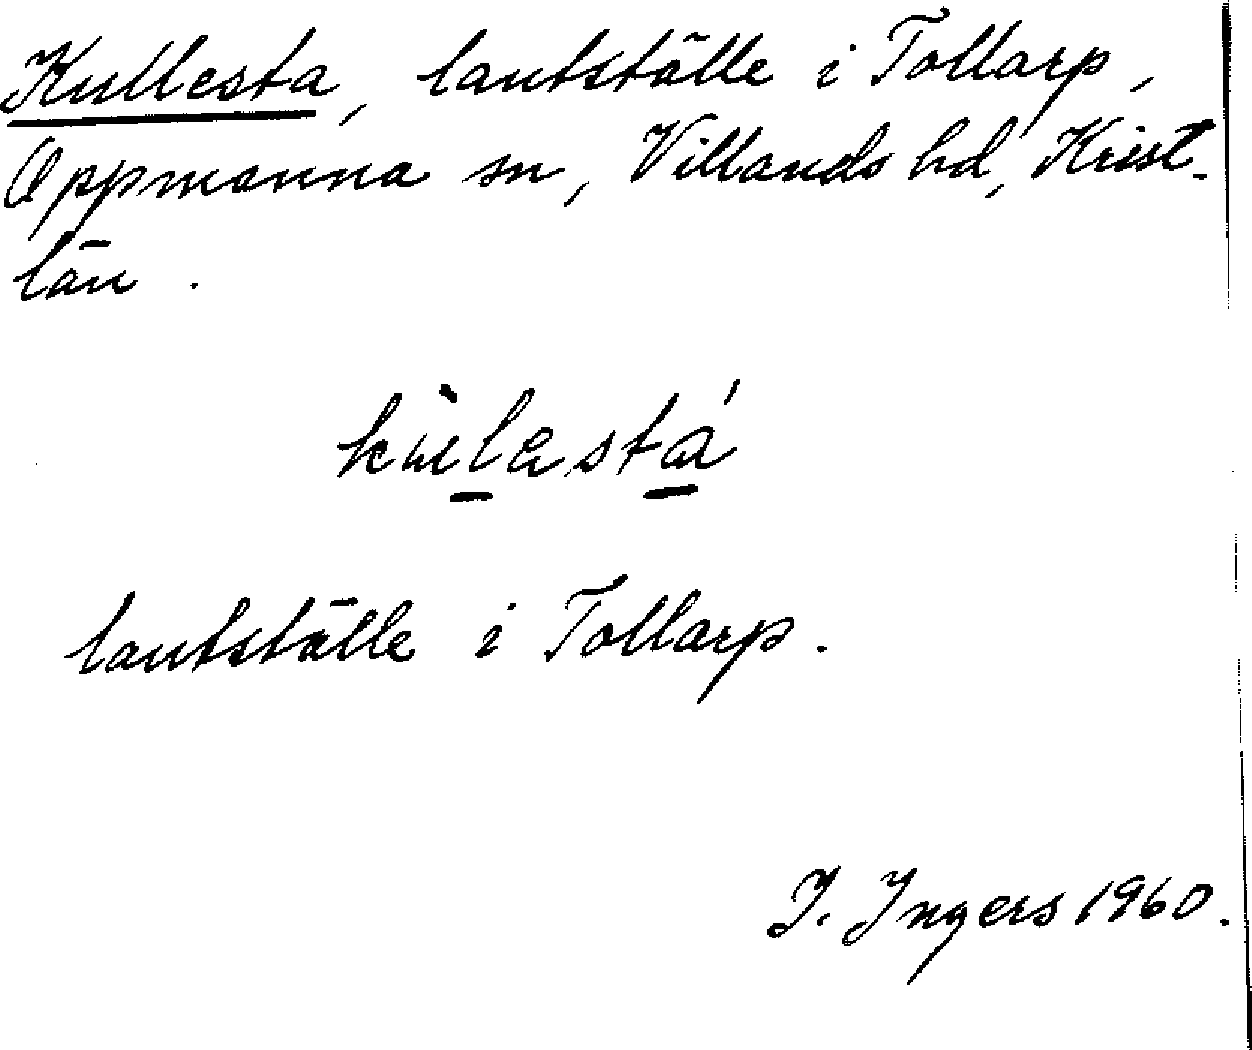 Kullesta, lantställe i Tollarp,
Oppmanna sn, Villands hd, Krist.
län.
kùlastá
lantställe i Tollarp.
I. Ingers 1960.